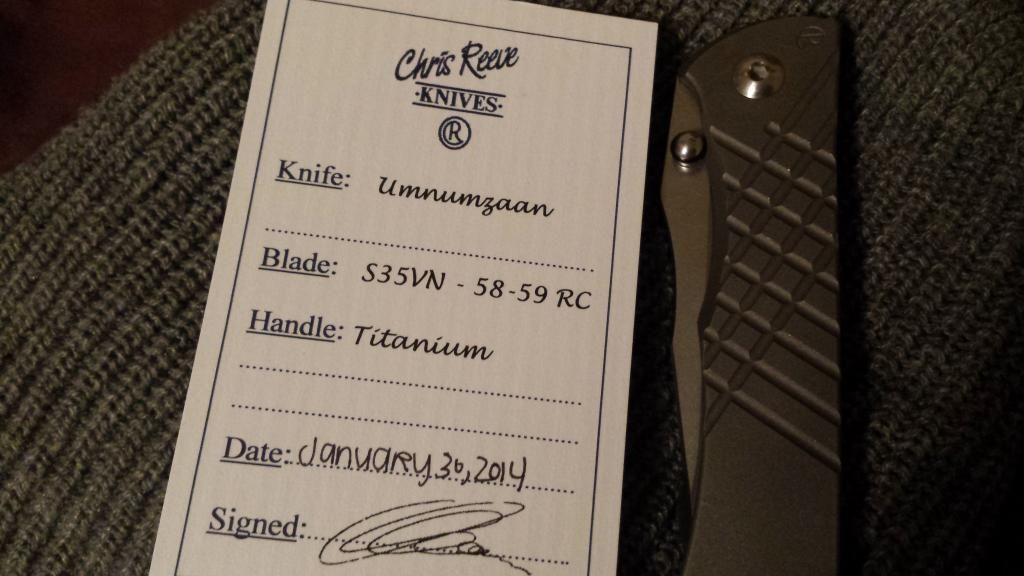 Chris Reeve
·KNIVES·
®
Knife: Umnumzaan
Blade: S35VN - 58-59 RC
Handle: Titanium
Date: January 30, 2014
Signed: